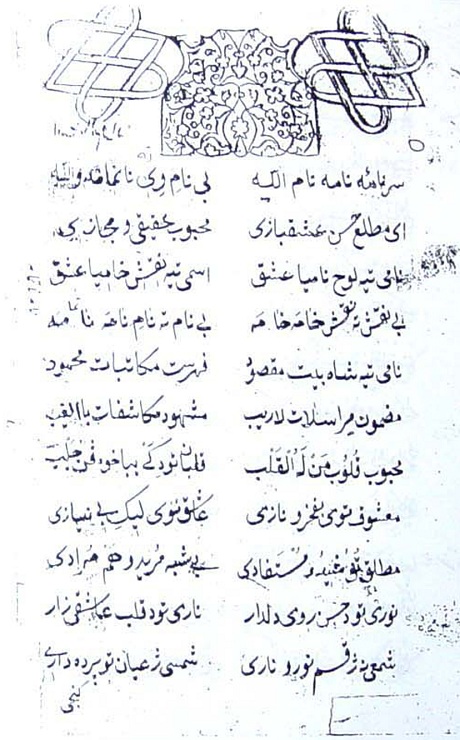 سرنامه نامه نام الله بی نام وی ناتمامه والله
ای مطلع حسن عشقبازی محبوب حقیقی و مجازی
نامی ته یه لوح نامیا عشق اسمی ته یه نقش خامیا عشق
بی نقش ته نقش خامه خامه بی نام ته نام نامه ناتمامه
نامی ته یه شاه بیت مقصود فهرست مکاتبات محمود
مضمون مراسلات لاریب مشهود مکاشفات بالغیب
محبوب قُلُوب مَنْ لَهُ القَلْب قلبان تودکی بباخوڤه جلب
معشوق توی بفخر و نازی عاشق توی لیک بی نیازی
مطلق تو مفید و مستفادی بی شبه مرید و هم مرادی
نوری تو د حسن روی دلدار ناری تو د قلب عاشقی زار
شمعی نه ژ قسم نور و ناری شمسی ژ عیان تو پرده داری
گنجی